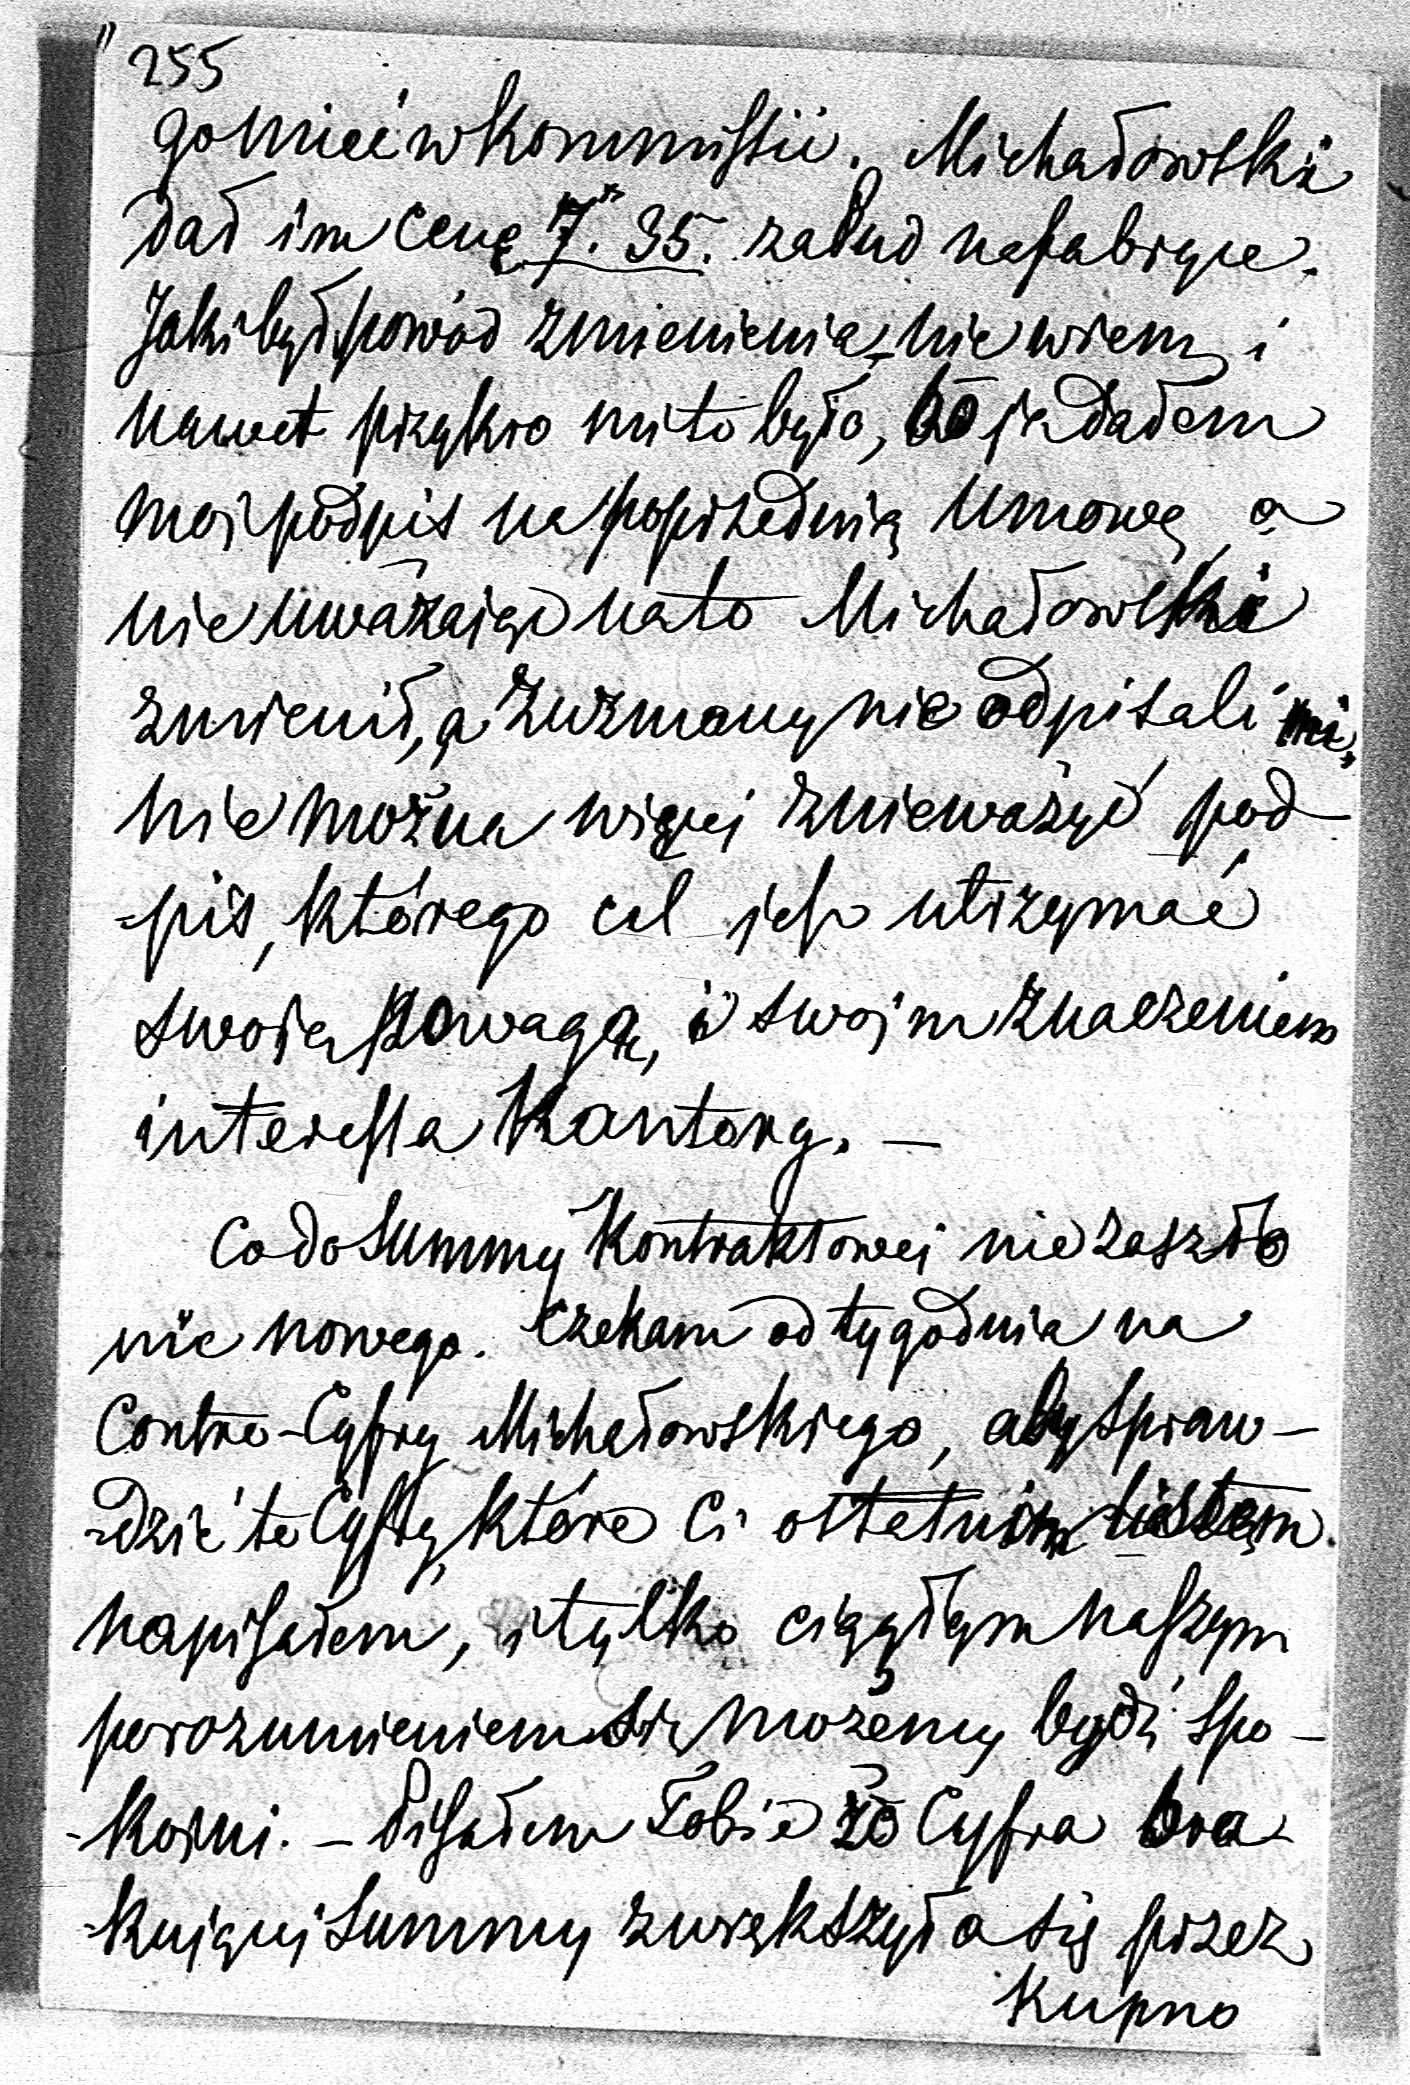 255
go mieć w kommissii. Michałowski
dał im cenę 7. 35. za pud na fabryce.
Jaki był powód zmienienia nie wiem, i
nawet przykro mi to było, bo ja dałem
mój podpis na poprzednią umowę, a
nie uważając na to Michałowski
zmienił, a Zuzmany nie odpisali mi,
nie można więcej znieważyć pod-
-pis, którego cel jest utrzymać
swoią powagą, i swojm znaczeniem
interessa Kantory. —
Co do Summy Kontraktowej nie zaszło
nic nowego. Czekam od tygodnia na
Contra-Cyfry Michałowskiego, aby spraw-
-dzić te Cyfry, które Ci ostatnim listem
napisałem, i tylko ciągłym naszym
porozumieniem się możemy bydź spo-
-kojni. – Pisałem Tobie że Cyfra bra-
-kuiącej Summy zwiększyła się przez
kupno